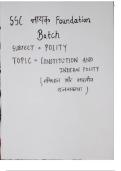 SSC नायक Foundation
Batch
SUBJECT = POLITY
TOPIC = CONSTITUTION AND
INDIAN POLITY
(संविधान और भारतीय
राजव्यवस्था)